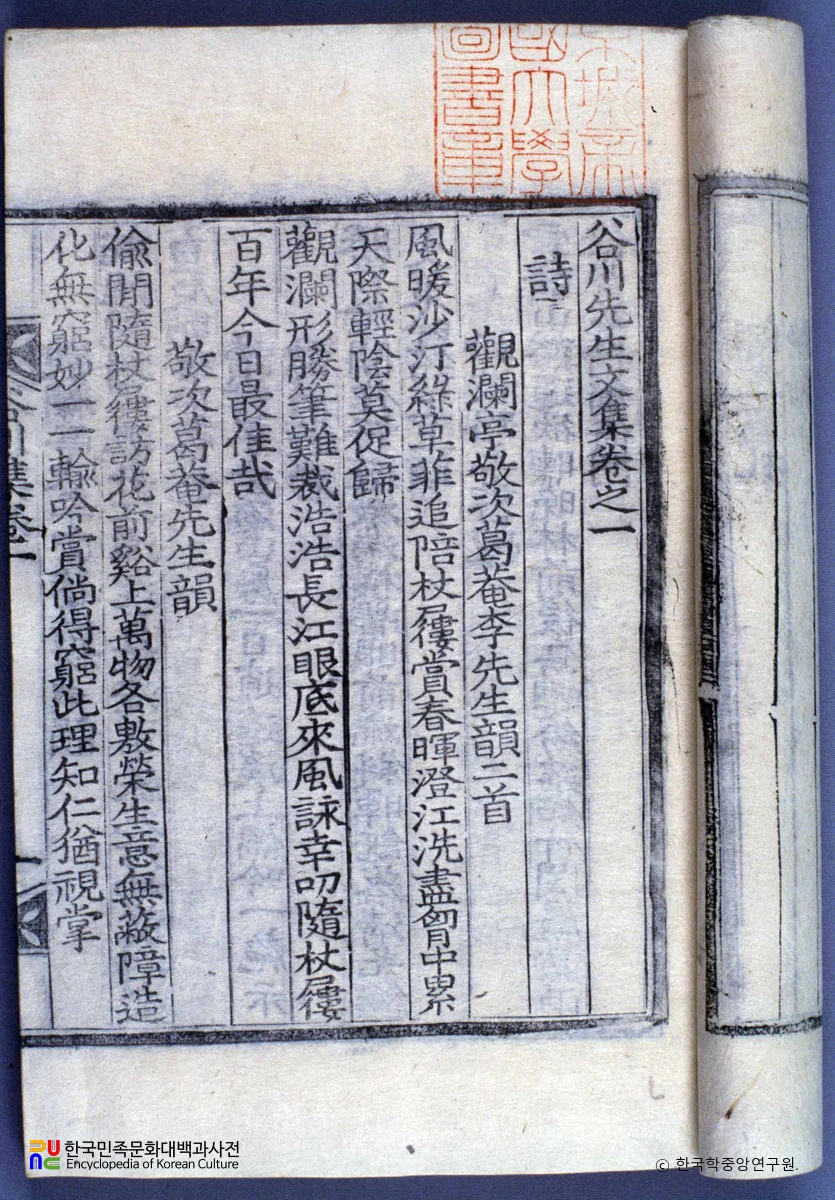 谷川先生文集卷之一
詩
觀瀾亭敬次葛菴李先生韻二首
風暖沙汀綠草菲追陪杖屨賞春暉澄江洗盡胷中累
天際輕陰莫促歸
觀瀾形勝筆難裁浩浩長江眼底來風詠幸叨隨杖屨
百年今日最佳哉
敬次葛菴先生韻
偸閒隨杖屨訪花前谿上萬物各敷榮生意無蔽障造
化無窮妙一一輸吟賞倘得窮此理知仁猶視掌
城帝
國大學
圖書章
한국민족문화대백과사전
Encyclopedia of Korean Culture
© 한국학중앙연구원.